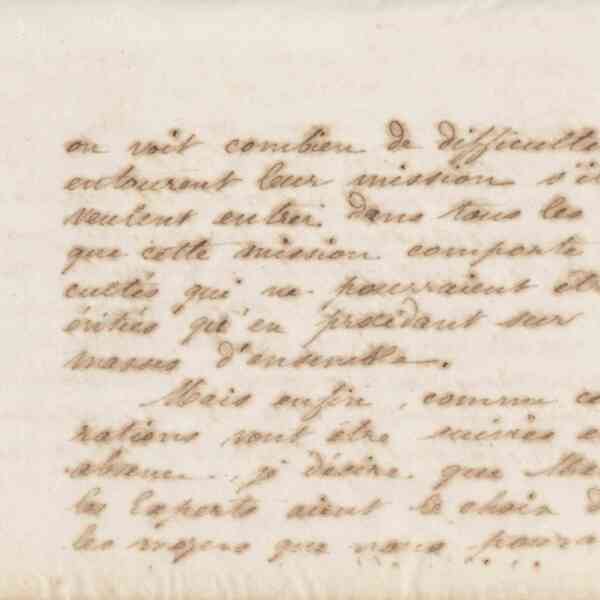 on voit combien de difficulté
entourent leur mission s'il
veulent entrer dans tous les
que cette mission comporte
cultés qui ne pourraient êtr
évitées qu'en procédant sur
masses d'ensemble.
Mais enfin, comme
rations vont être suivies e
absence, je désire que
les Experts aient le choix d
les moyens que nous